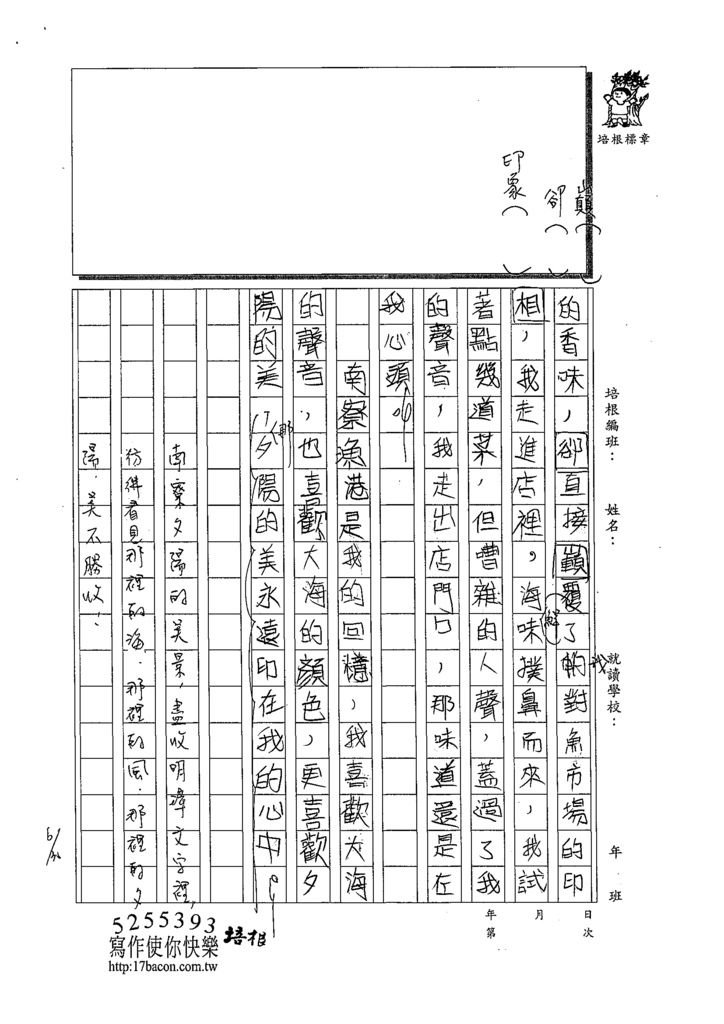 培根標章
印象（　）
卻（　）
巔（　）
培根編班：　姓名：　就讀學校：　年　班
的香味，卻直接顛覆了我對魚市場的印
相，我走進店裡，海味撲鼻而來，我試
著點幾道菜，但嘈雜的人聲，蓋過了我
的聲音，我走出店門口，那味道還是在
我心頭。
南寮漁港是我的回憶，我喜歡大海
的聲音，也喜歡大海的顏色，更喜歡夕
陽的美，夕陽的美永遠印在我的心中。
南寮夕陽的美景，盡收明瑋文字裡，
彷彿看見那裡的海．那裡的風．那裡的夕
陽．美不勝收！
年　月　日
第　次
5255393
寫作使你快樂
培根
http:17bacon.com.tw